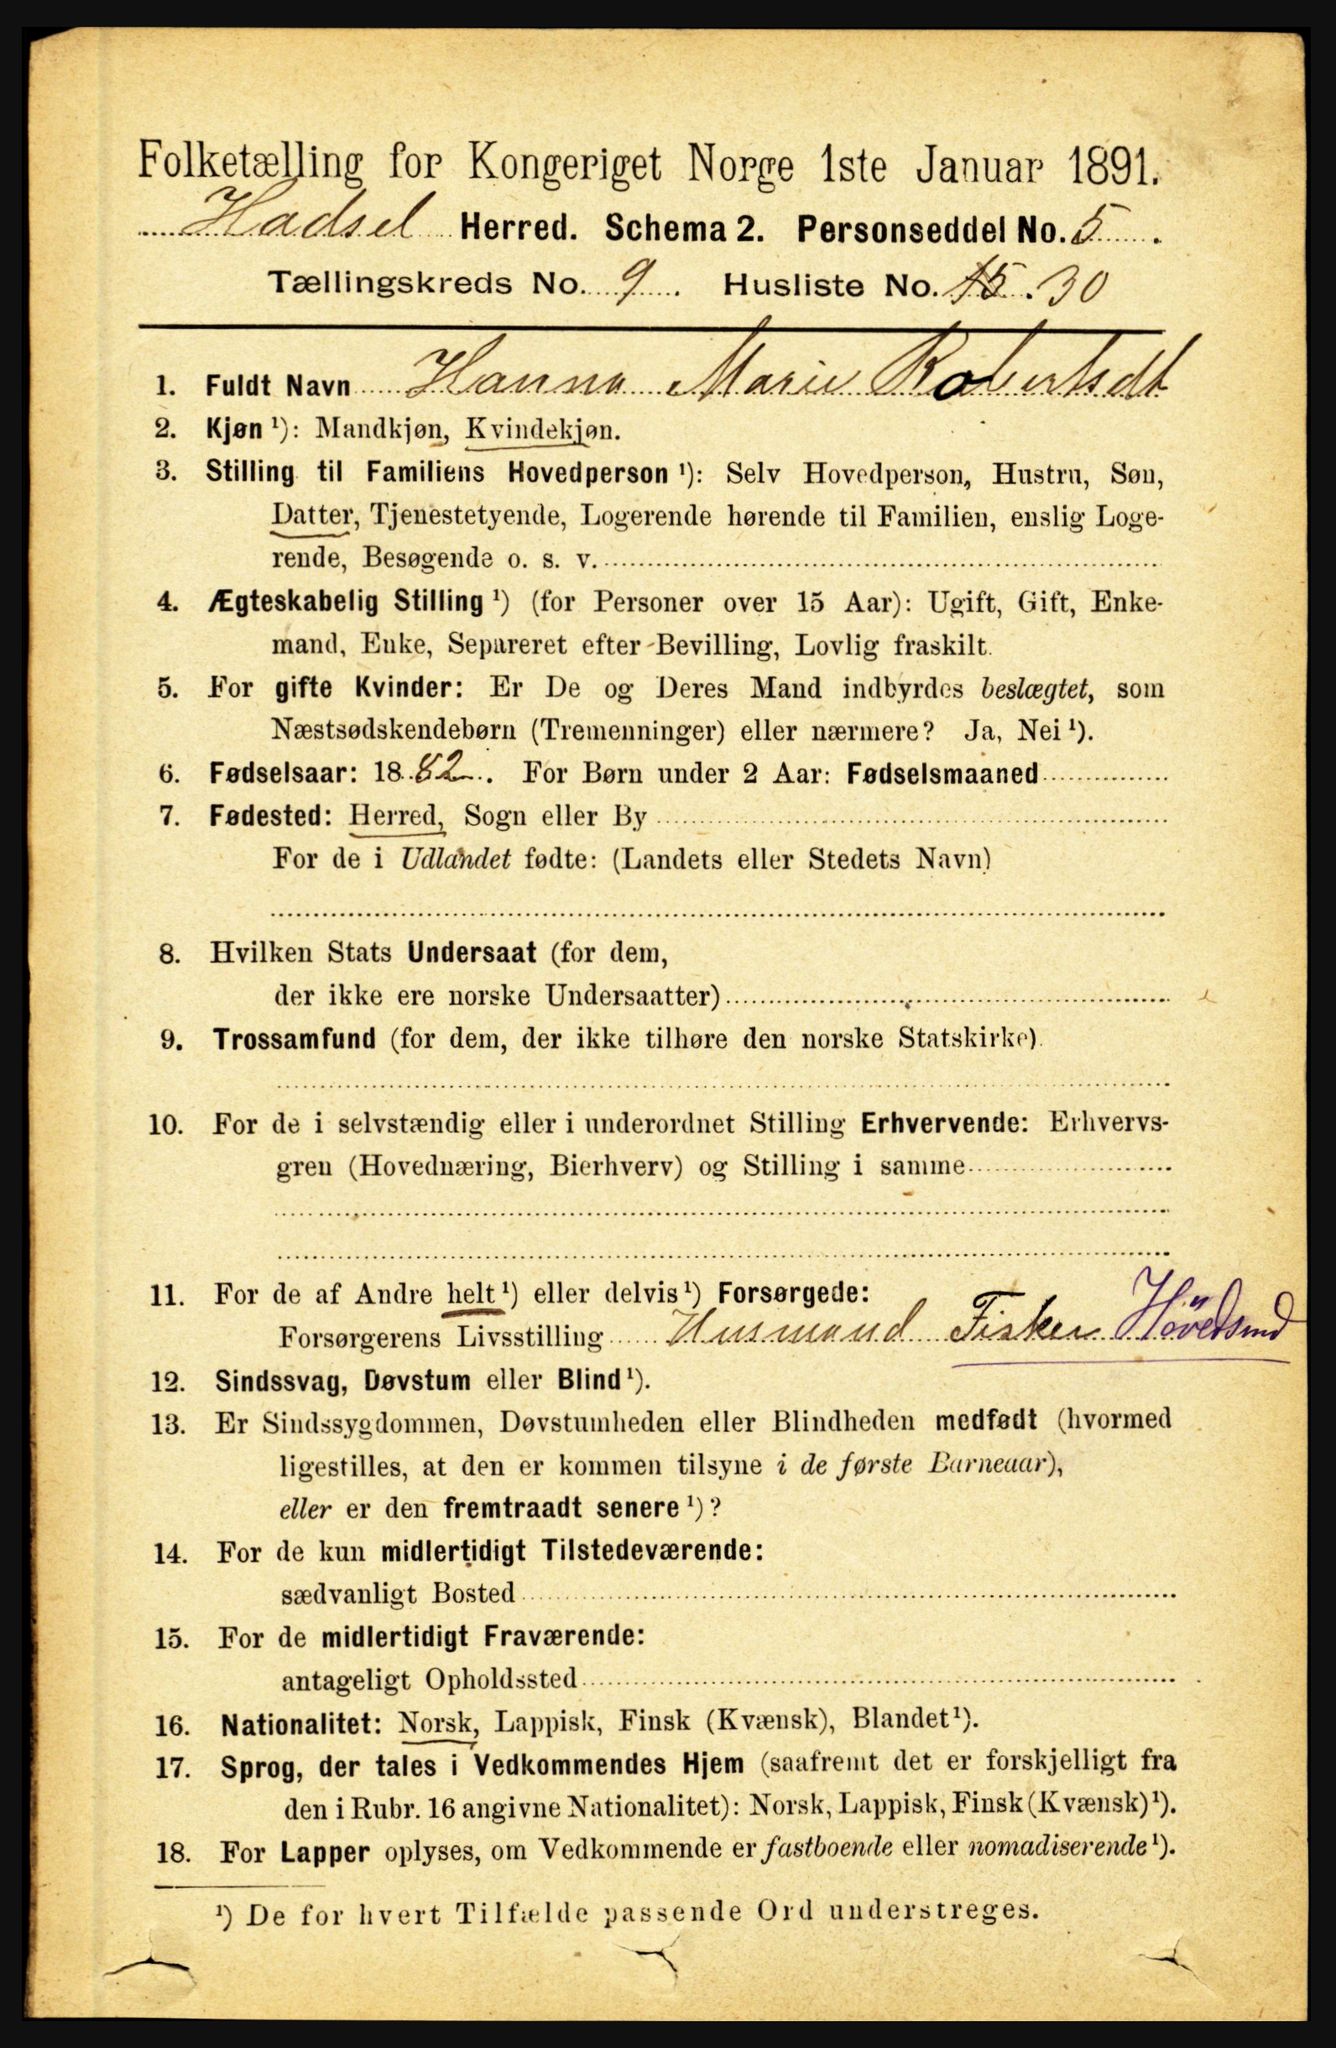 Folketælling for Kongeriget Norge 1ste Januar 1891.
Hadsel Herred. Schema 2. Personseddel No. 5.
Tællingskreds No. 9. Husliste No. 15. 30
1. Fuldt Navn Hanna Marie Robertsdt
2. Kjøn ¹): Mandkjøn, Kvindekjøn.
3. Stilling til Familiens Hovedperson ¹): Selv Hovedperson, Hustru, Søn,
Datter, Tjenestetyende, Logerende hørende til Familien, enslig Loge-
rende, Besøgende o. s. v.
4. Ægteskabelig Stilling ¹) (for Personer over 15 Aar): Ugift, Gift, Enke-
mand, Enke, Separeret efter Bevilling, Lovlig fraskilt.
5. For gifte Kvinder: Er De og Deres Mand indbyrdes beslægtet, som
Næstsødskendebørn (Tremenninger) eller nærmere? Ja, Nei ¹).
6. Fødselsaar: 1882. For Børn under 2 Aar: Fødselsmaaned
7. Fødested: Herred, Sogn eller By
For de i Udlandet fødte: (Landets eller Stedets Navn)
8. Hvilken Stats Undersaat (for dem,
der ikke ere norske Undersaatter)
9. Trossamfund (for dem, der ikke tilhøre den norske Statskirke).
10. For de i selvstændig eller i underordnet Stilling Erhvervende: Erhvervs-
gren (Hovednæring, Bierhverv) og Stilling i samme
11. For de af Andre helt ¹) eller delvis ¹) Forsørgede:
Forsørgerens Livsstilling Husmand Fisker
12. Sindssvag, Døvstum eller Blind ¹).
13. Er Sindssygdommen, Døvstumheden eller Blindheden medfødt (hvormed
ligestilles, at den er kommen tilsyne i de første Barneaar),
eller er den fremtraadt senere ¹)?
14. For de kun midlertidigt Tilstedeværende:
sædvanligt Bosted
15. For de midlertidigt Fraværende:
antageligt Opholdssted
16. Nationalitet: Norsk, Lappisk, Finsk (Kvænsk), Blandet ¹).
17. Sprog, der tales i Vedkommendes Hjem (saafremt det er forskjelligt fra
den i Rubr. 16 angivne Nationalitet): Norsk, Lappisk, Finsk (Kvænsk) ¹).
18. For Lapper oplyses, om Vedkommende er fastboende eller nomadiserende ¹).
¹) De for hvert Tilfælde passende Ord understreges.